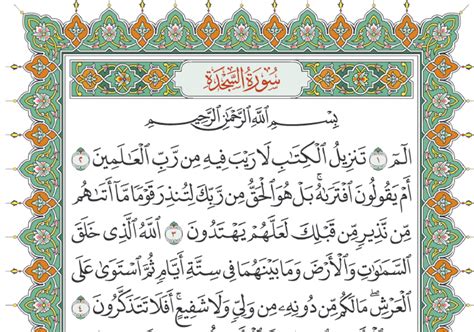 سُورَةُ السَّجْدَةِ
بِسْمِ ٱللَّهِ ٱلرَّحْمَٰنِ ٱلرَّحِيمِ
الٓمٓ ١ تَنزِيلُ ٱلْكِتَٰبِ لَا رَيْبَ فِيهِ مِن رَّبِّ ٱلْعَٰلَمِينَ ٢
أَمْ يَقُولُونَ ٱفْتَرَىٰهُ ۚ بَلْ هُوَ ٱلْحَقُّ مِن رَّبِّكَ لِتُنذِرَ قَوْمًا مَّآ أَتَىٰهُم
مِّن نَّذِيرٍ مِّن قَبْلِكَ لَعَلَّهُمْ يَهْتَدُونَ ٣ ٱللَّهُ ٱلَّذِى خَلَقَ
ٱلسَّمَٰوَٰتِ وَٱلْأَرْضَ وَمَا بَيْنَهُمَا فِى سِتَّةِ أَيَّامٍ ثُمَّ ٱسْتَوَىٰ عَلَى
ٱلْعَرْشِ ۖ مَا لَكُم مِّن دُونِهِۦ مِن وَلِىٍّ وَلَا شَفِيعٍ ۚ أَفَلَا تَتَذَكَّرُونَ ٤